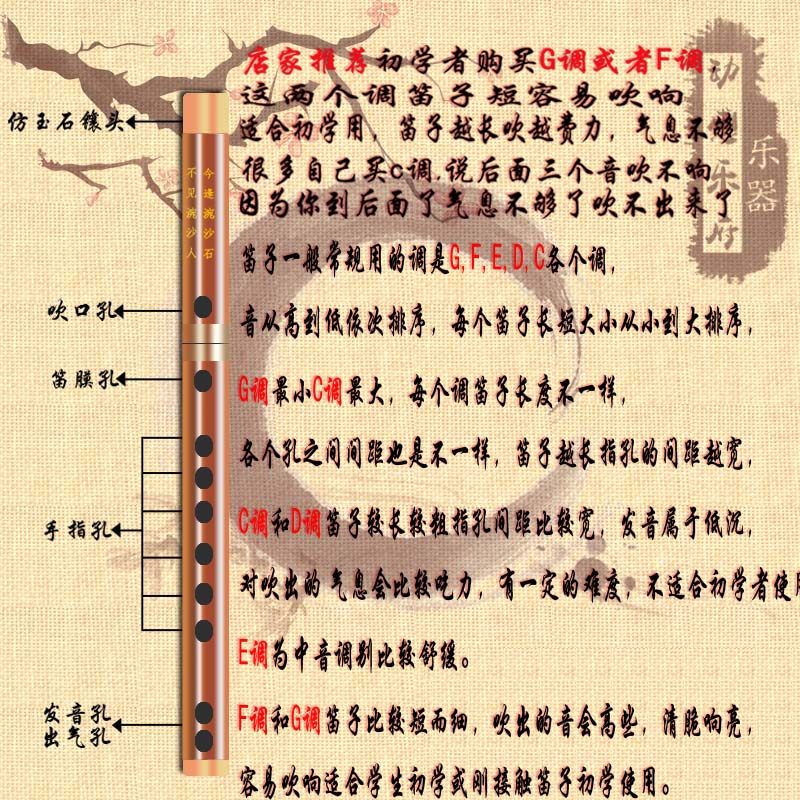 店家推荐初学者购买G调或者F调
这两个调笛子短容易吹响
适合初学用，笛子越长吹越费力，气息不够
很多自己买c调,说后面三个音吹不响
因为你到后面了气息不够了吹不出来了
笛子一般常规用的调是G,F,E,D,C各个调，
音从高到低依次排序，每个笛子长短大小从小到大排序，
G调最小C调最大，每个调笛子长度不一样，
各个孔之间间距也是不一样，笛子越长指孔的间距越宽，
C调和D调笛子较长较粗指孔间距比较宽，发音属于低沉，
对吹出的气息会比较吃力，有一定的难度，不适合初学者使用
E调为中音调别比较舒缓。
F调和G调笛子比较短而细，吹出的音会高些，清脆响亮，
容易吹响适合学生初学或刚接触笛子初学使用。
仿玉石镶头
吹口孔
笛膜孔
手指孔
发音孔
出气孔
今逢浣沙石
不见浣沙人
乐器